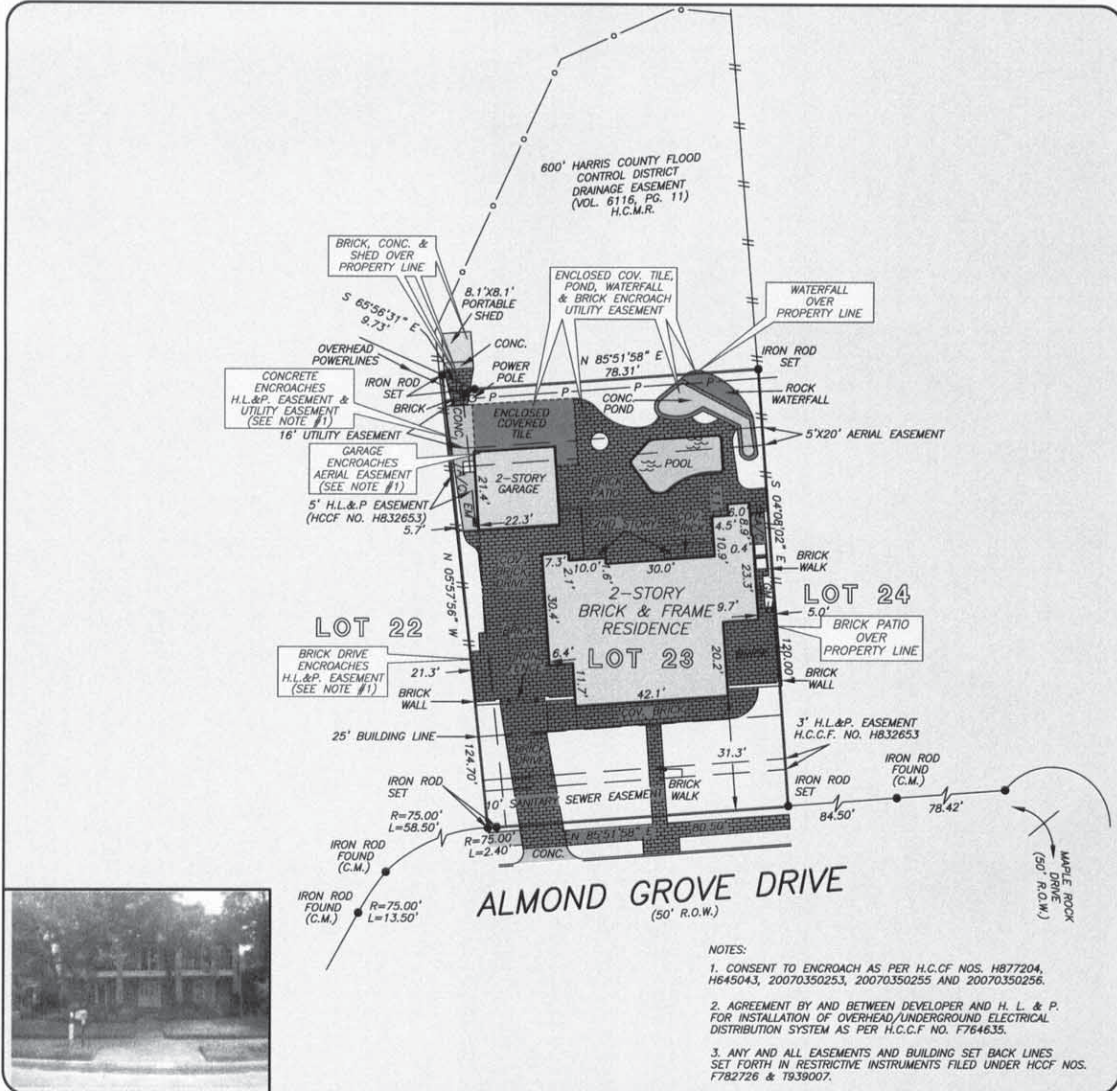 600' HARRIS COUNTY FLOOD
CONTROL DISTRICT
DRAINAGE EASEMENT
(VOL. 6116, PG. 11)
H.C.M.R.
BRICK, CONC. &
SHED OVER
PROPERTY LINE
8.1'X8.1'
PORTABLE
SHED
CONC.
ENCLOSED COV. TILE,
POND, WATERFALL
& BRICK ENCROACH
UTILITY EASEMENT
WATERFALL
OVER
PROPERTY LINE
S 65°56'31" E
9.73'
OVERHEAD
POWERLINES
IRON ROD
SET
BRICK
POWER
POLE
N 85°51'58" E
78.31'
IRON ROD
SET
P
P
P
P
CONC.
POND
ROCK
WATERFALL
CONCRETE
ENCROACHES
H.L.&P. EASEMENT &
UTILITY EASEMENT
(SEE NOTE #1)
16' UTILITY EASEMENT
CONC.
ENCLOSED
COVERED
TILE
5'X20' AERIAL EASEMENT
GARAGE
ENCROACHES
AERIAL EASEMENT
(SEE NOTE #1)
5' H.L.&P EASEMENT
(HCCF NO. H832653)
5.7'
21.4'
2-STORY
GARAGE
22.3'
POOL
BRICK
PATIO
2ND STORY
COV.
BRICK
S 04°08'02" E
120.00'
6.0'
4.5'
8.9'
10.9'
0.4'
23.3'
BRICK
WALK
N 05°57'56" W
124.70'
COV.
BRICK
DRIVE
7.3'
10.0'
2.1'
1.6'
30.0'
30.4'
2-STORY
BRICK & FRAME
RESIDENCE
9.7'
GM
5.0'
LOT 22
LOT 23
LOT 24
BRICK PATIO
OVER
PROPERTY LINE
BRICK DRIVE
ENCROACHES
H.L.&P. EASEMENT
(SEE NOTE #1)
21.3'
BRICK
6.4'
11.7'
20.2'
BRICK
BRICK
WALL
BRICK
WALL
42.1'
COV. BRICK
25' BUILDING LINE
BRICK
DRIVE
31.3'
3' H.L.&P. EASEMENT
H.C.C.F. NO. H832653
IRON ROD
SET
10' SANITARY SEWER EASEMENT
BRICK
WALK
IRON ROD
SET
IRON ROD
FOUND
(C.M.)
84.50'
78.42'
R=75.00'
L=58.50'
R=75.00'
L=2.40'
N 85°51'58" E 80.50'
CONC.
IRON ROD
FOUND
(C.M.)
IRON ROD
FOUND
(C.M.)
R=75.00'
L=13.50'
ALMOND GROVE DRIVE
(50' R.O.W.)
MAPLE ROCK
DRIVE
(50' R.O.W.)
NOTES:
1. CONSENT TO ENCROACH AS PER H.C.CF NOS. H877204,
H645043, 20070350253, 20070350255 AND 20070350256.
2. AGREEMENT BY AND BETWEEN DEVELOPER AND H. L. & P.
FOR INSTALLATION OF OVERHEAD/UNDERGROUND ELECTRICAL
DISTRIBUTION SYSTEM AS PER H.C.C.F NO. F764635.
3. ANY AND ALL EASEMENTS AND BUILDING SET BACK LINES
SET FORTH IN RESTRICTIVE INSTRUMENTS FILED UNDER HCCF NOS.
F782726 & T939007.